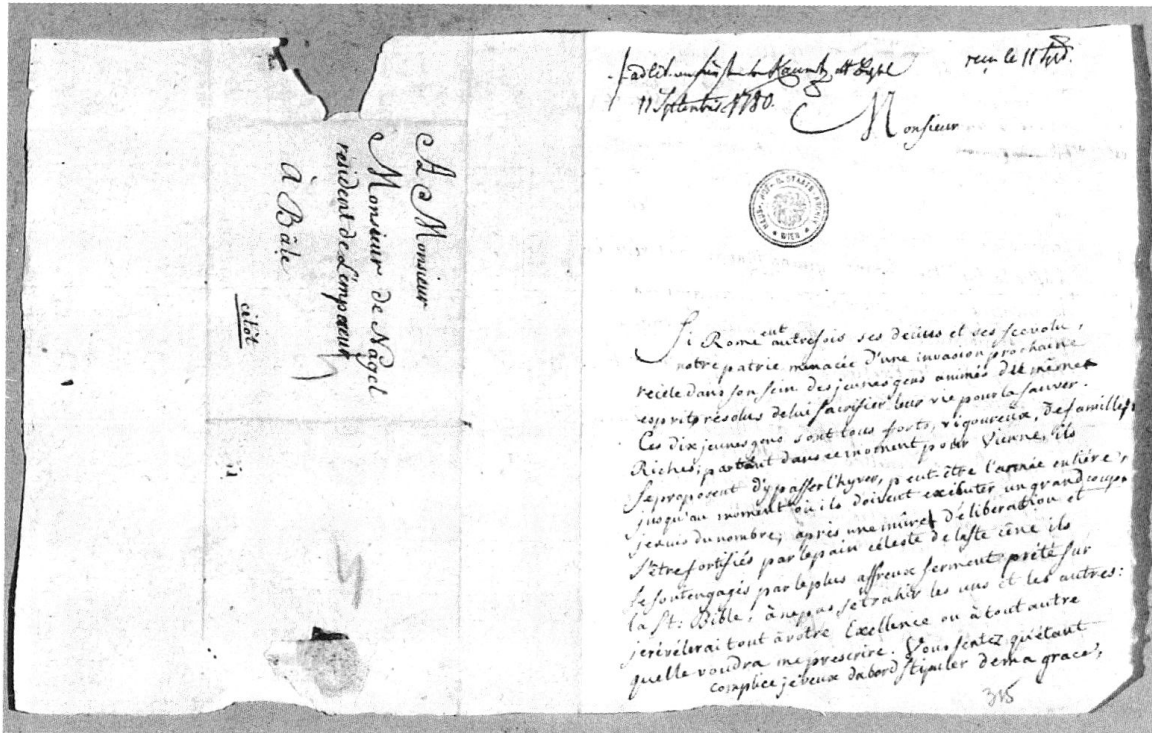 A Monsieur
Monsieur de Nagel
résident de L'empereur
à Bâle
citôt
reçu le 11
11 Septembre 1780.
Monsieur
HAUS-, HOF- U. STAATS-ARCHIV
WIEN
Si Rome eut autrefois ses decius et ses scevolu,
notre patrie menacée d'une invasion prochaine
recèle dans son sein des jeunes gens animés du même
esprit résolus de lui sacrifier leur vie pour la sauver.
Ces dix jeunes gens sont tous forts, vigoureux, de familles
Riches; partent dans ce moment pour Vienne, ils
se proposent d'y passer l'hyver, peut être l'année entière,
jusqu'au moment où ils doivent exécuter un grand coup
je suis du nombre; après une mûre délibération et
s'être fortifiés par le pain céleste de la ste cène ils
se sont engagés par le plus affreux serment prêté sur
la St: Bible, à ne pas se trahir les uns et les autres:
je révélerai tout à votre Excellence ou à tout autre
quelle voudra me prescrire. Vous sentez qu'étant
complice je veux dabord stipuler de ma grace,
315